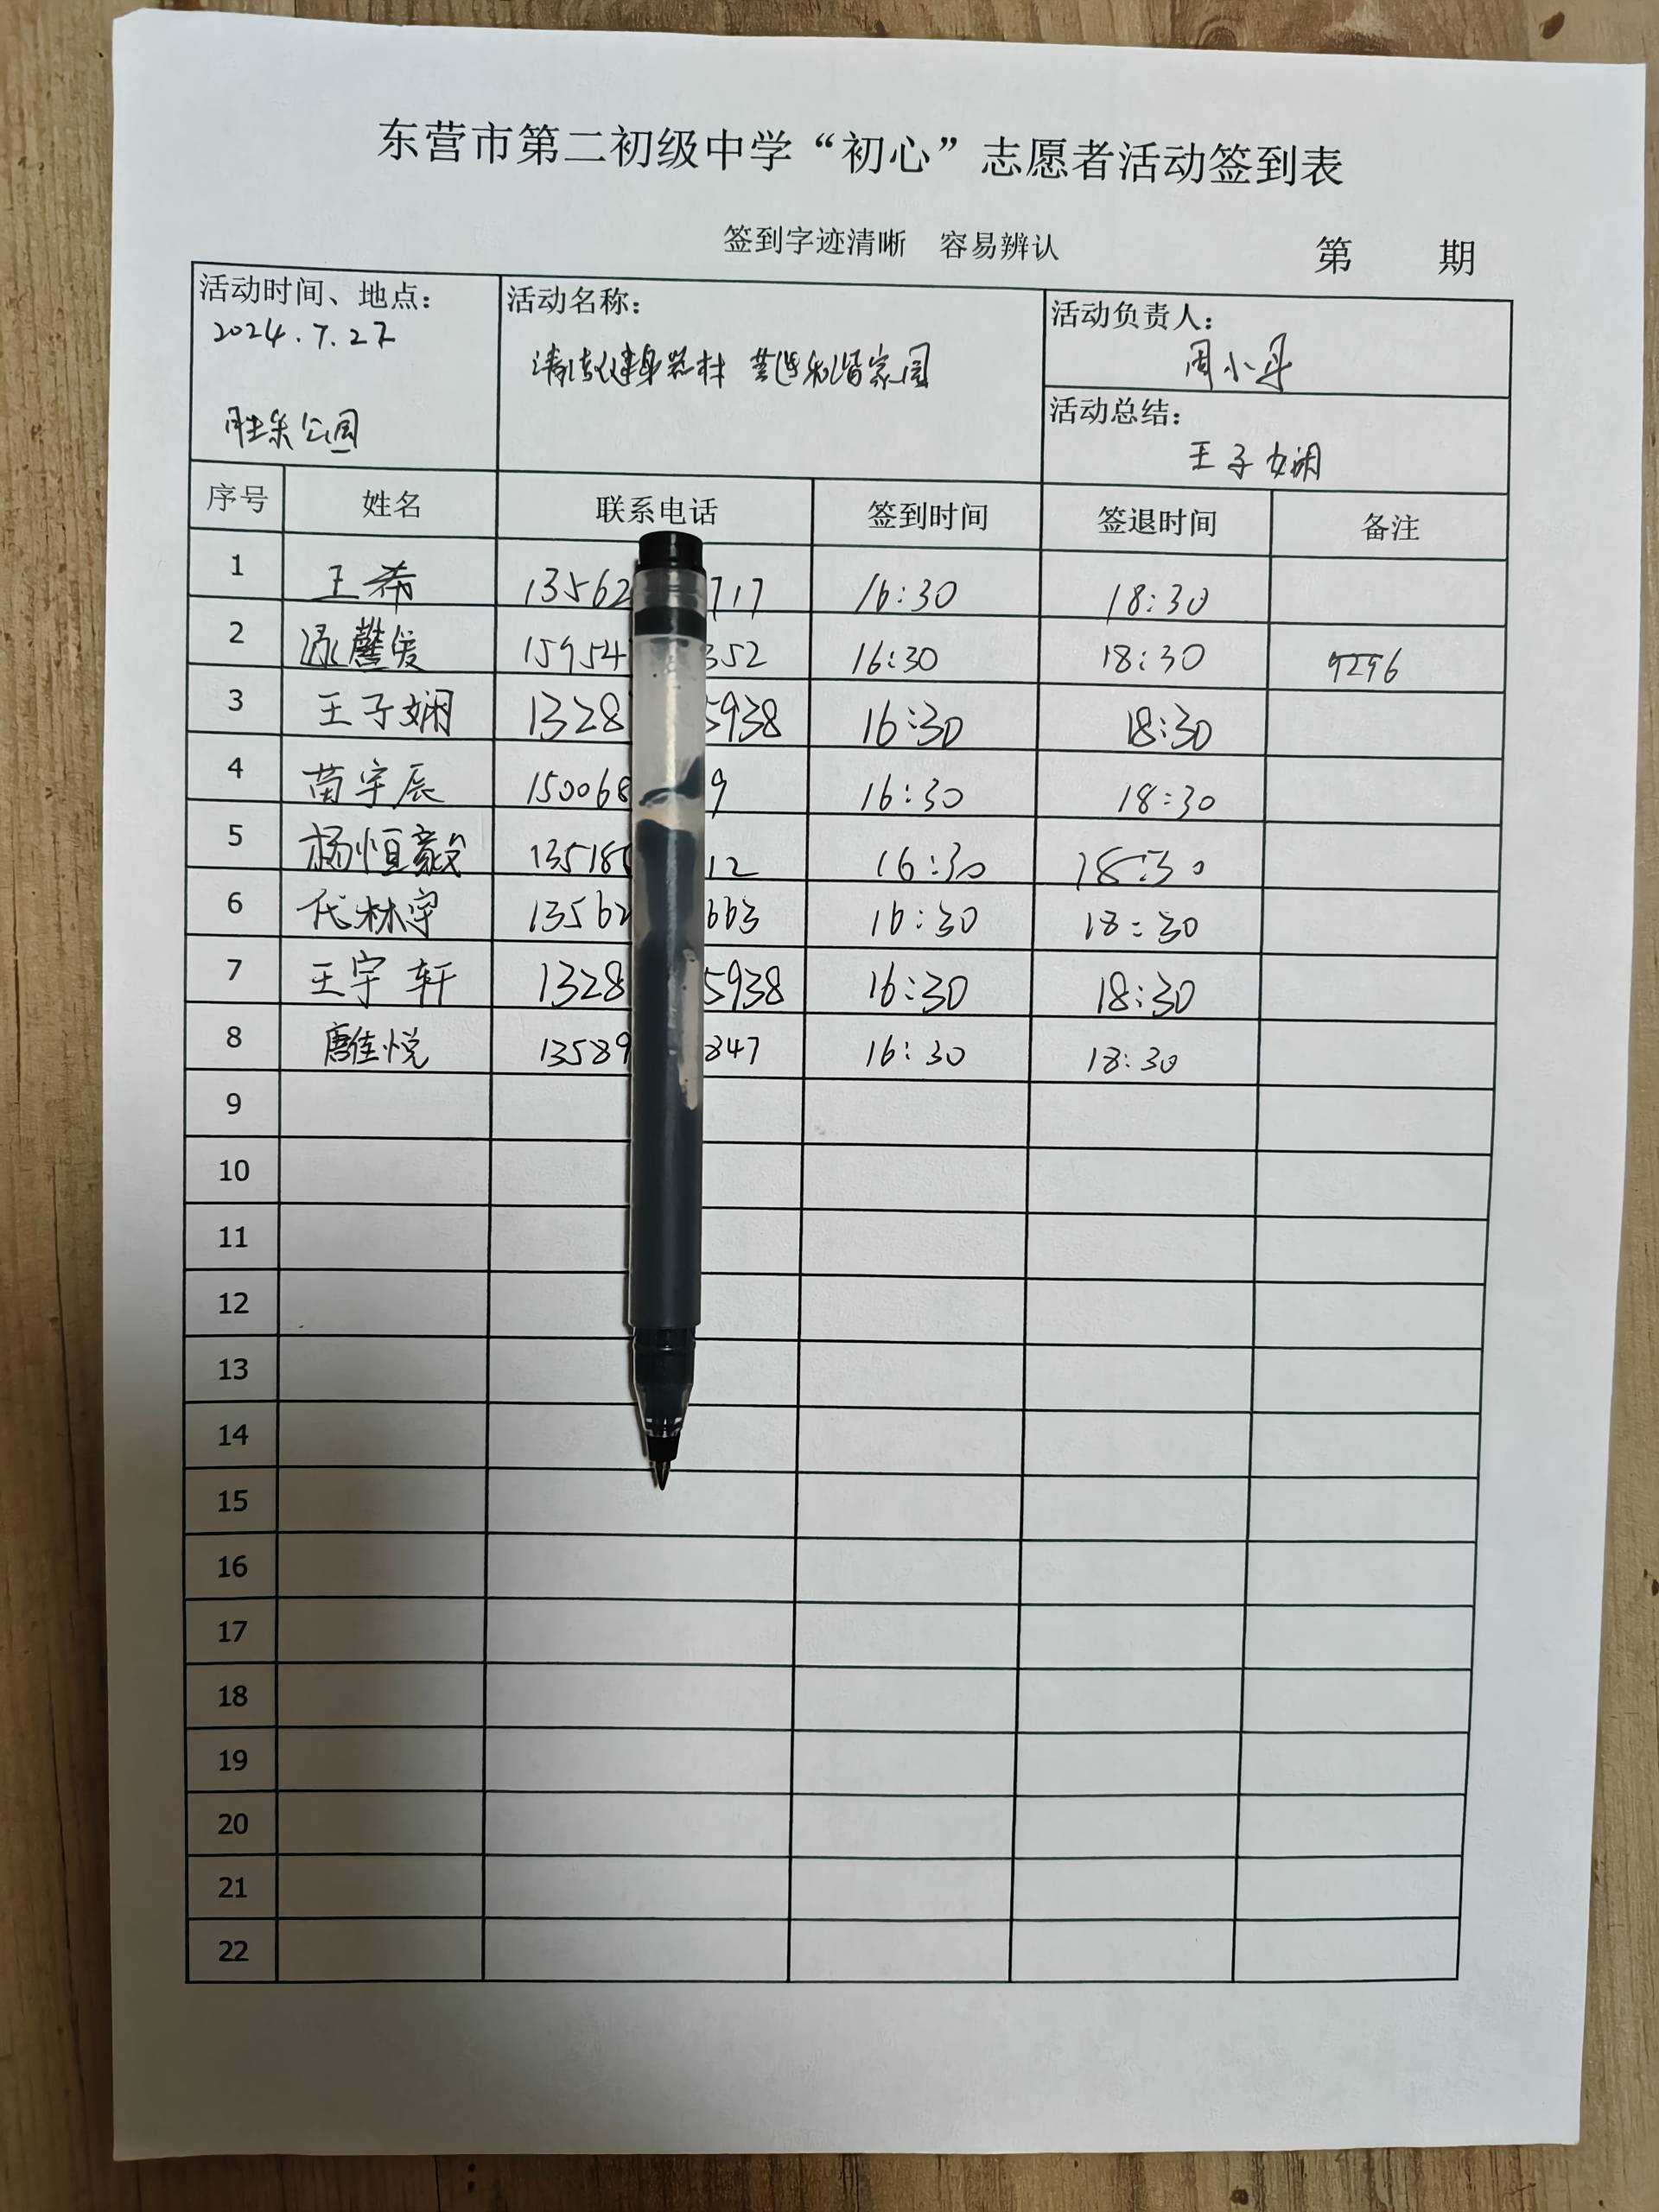 东营市第二初级中学“初心”志愿者活动签到表
签到字迹清晰 容易辨认 第 期
活动时间、地点： 活动名称： 活动负责人：
2024.7.27
清洁健身器材 营造和谐家园 周小丹
活动总结：
胜采公园 王子娴
序号 姓名 联系电话 签到时间 签退时间 备注
1 王希 13562 717 16:30 18:30
2 15954 352 16:30 18:30 9296
3 王子娴 1328 5938 16:30 18:30
4 苗宇辰 150068 9 16:30 18:30
5 杨恒毅 13518 12 16:30 18:30
6 代林宇 13562 663 16:30 18:30
7 王宇轩 1328 5938 16:30 18:30
8 唐佳悦 13589 847 16:30 18:30
9
10
11
12
13
14
15
16
17
18
19
20
21
22